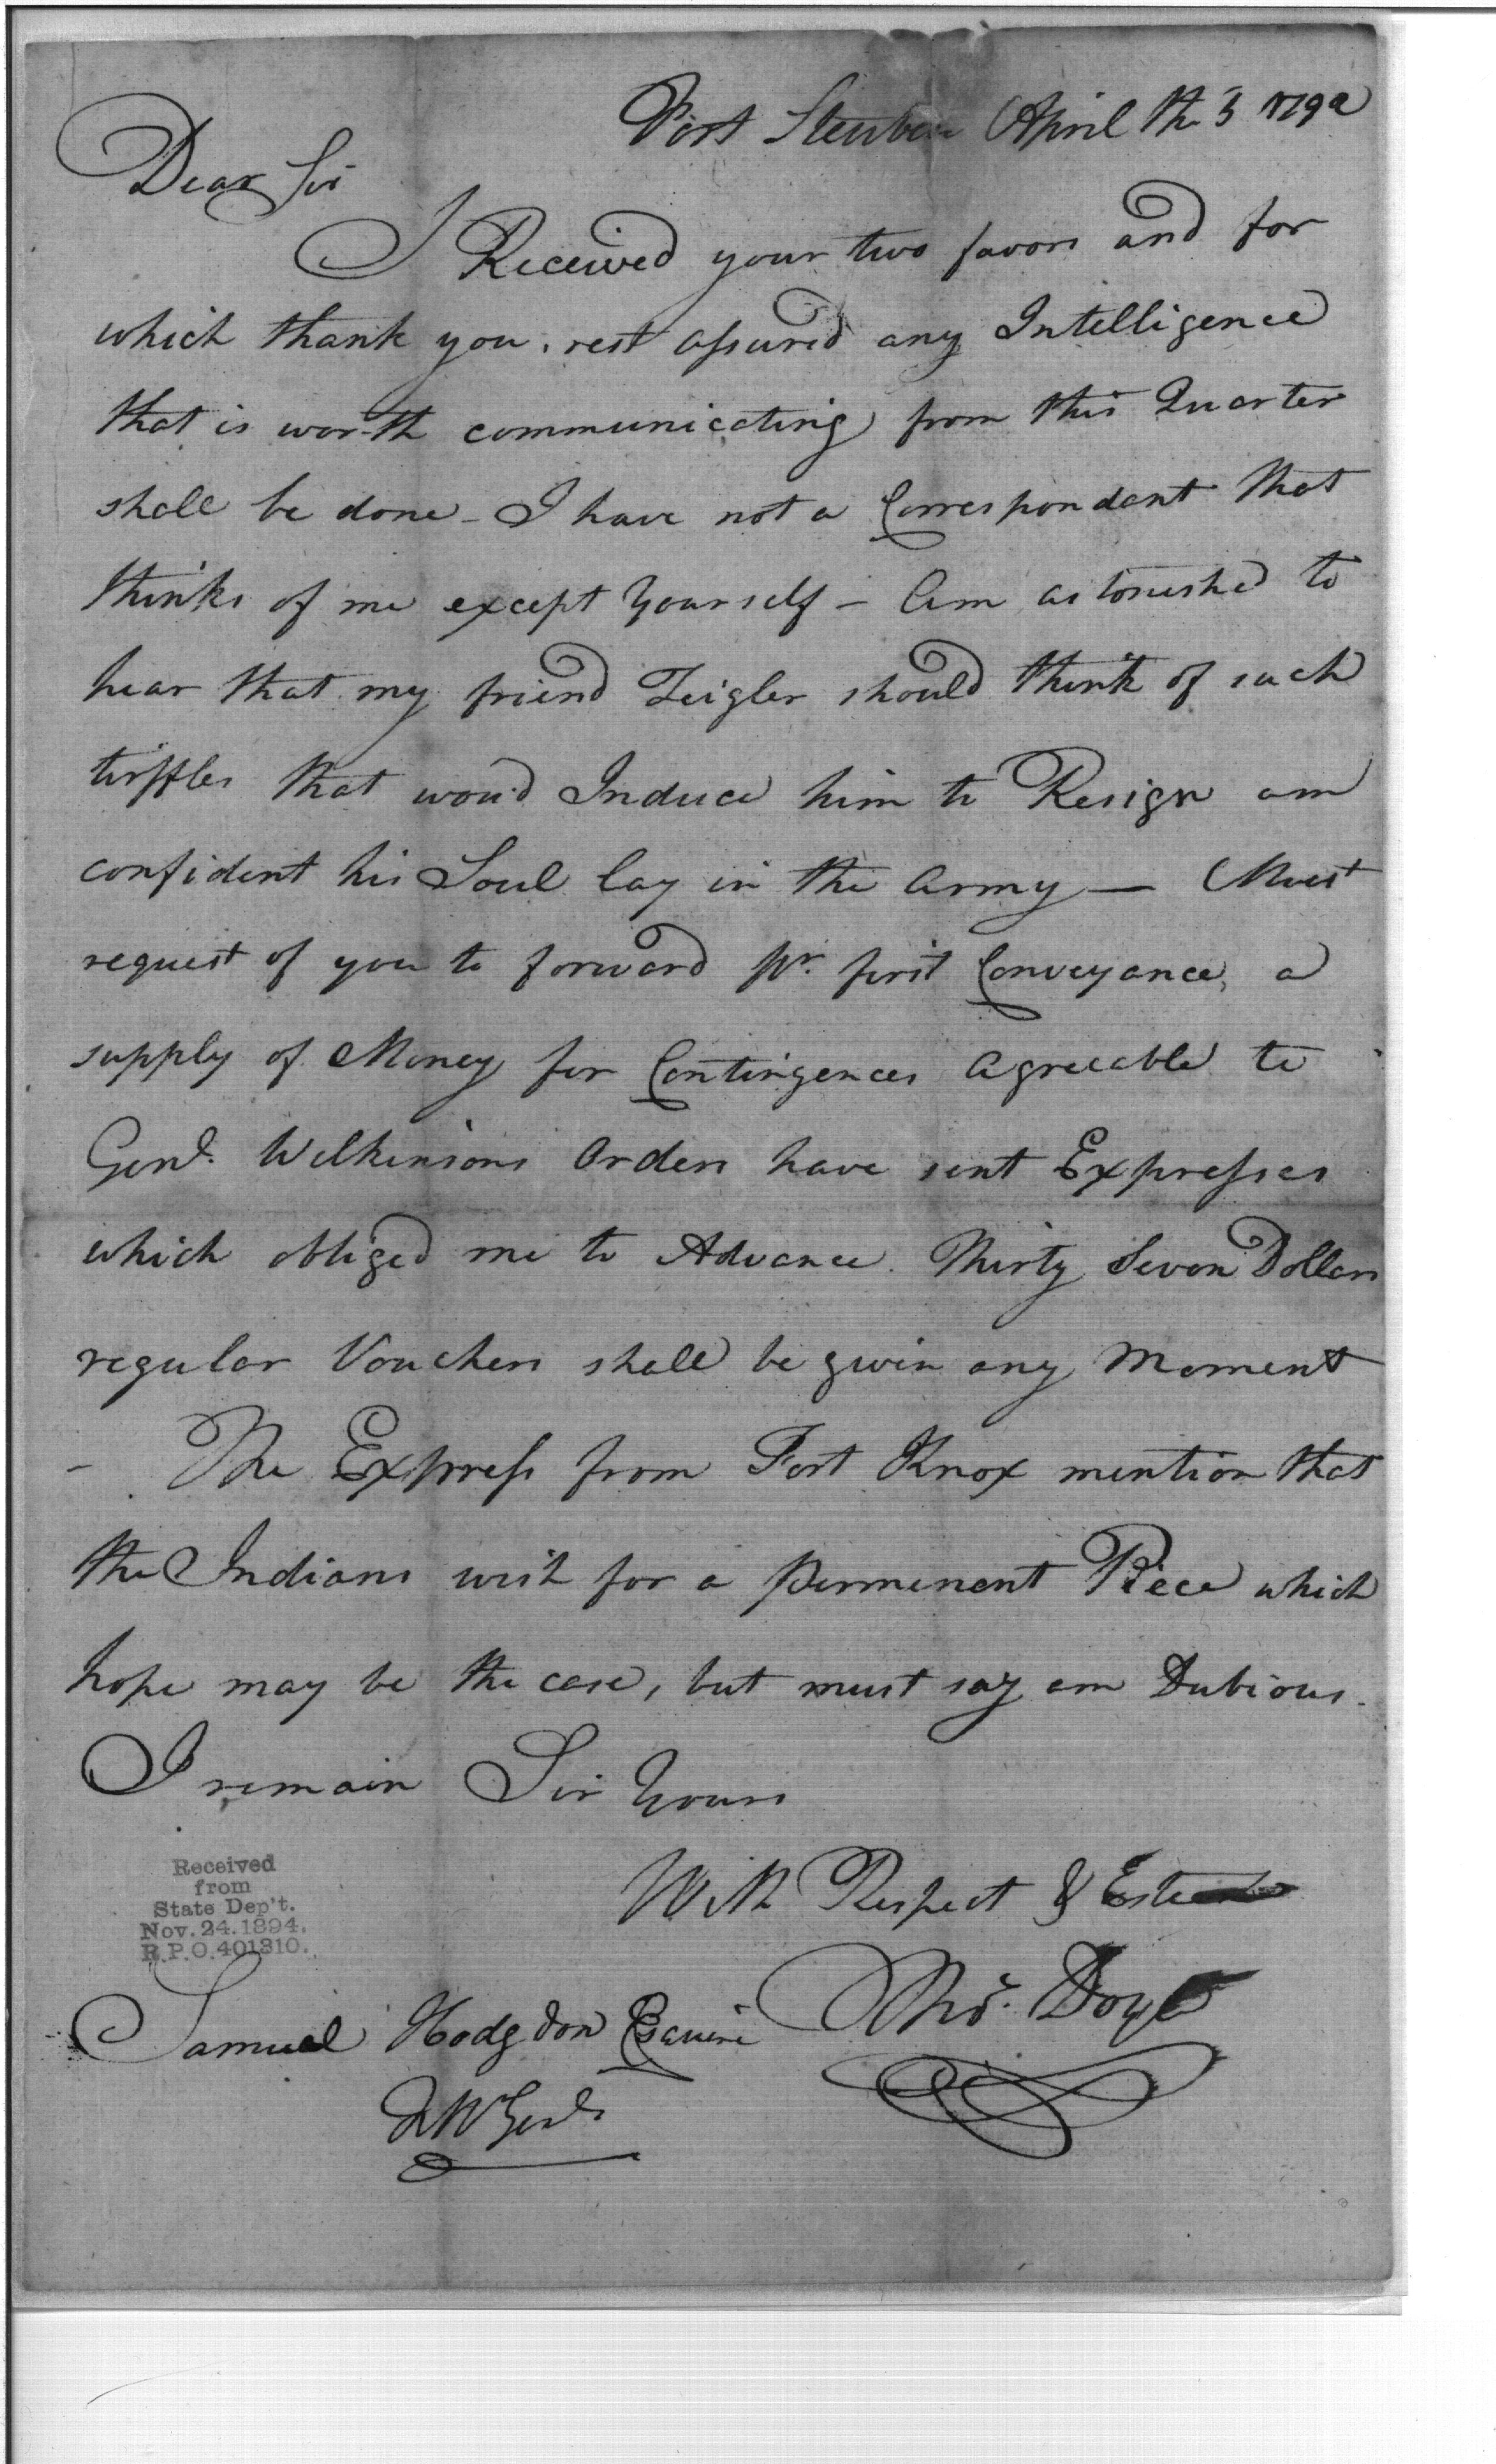 Fort Steuben April th 3 1792
Dear Sir
I Received your two favors and for
which thank you. rest assured any Intelligence
that is worth communicating from this Quarter
shall be done - I have not a Correspondent that
thinks of me except Yourself - Am astonished to
hear that my friend Zeigler should think of such
tirffles that woud Induce him to Resign am
confident his Soul lay in the Army — Must
request of you to forward pr. first Conveyance, a
supply of Money for Contingences Agreeable to
Genl. Wilkinsons Orders have sent Expresses
which obliged me to Advance Thirty Seven Dollars
regular Vouchers shall be given any Moment
- The Express from Fort Knox mention that
the Indians wish for a permenent Piece which
hope may be the case, but must say am Dubious.
I remain Sir Yours
With Respect & Esteem
Received
from
State Dep't.
Nov. 24. 1894.
R.P.O. 401310.
Thos. Doyle
Samuel Hodgdon Esquire
QMGenl